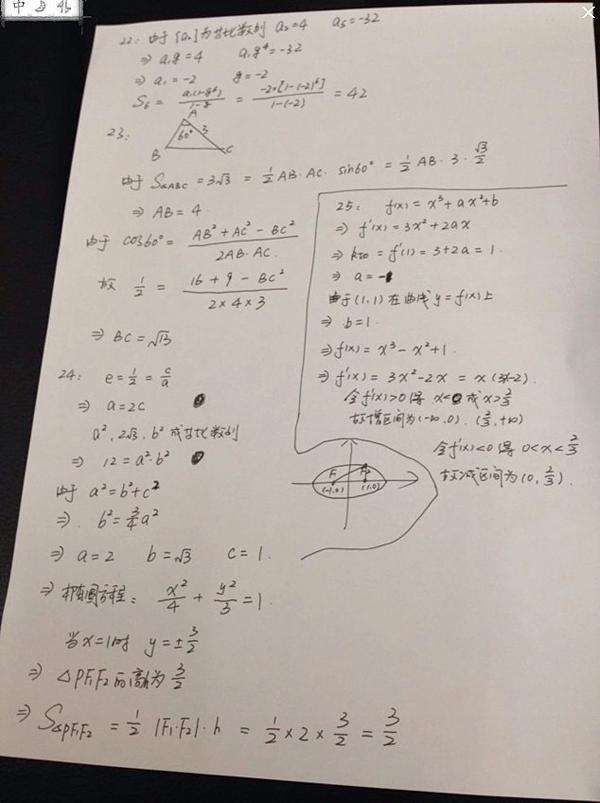 22: 由于{an}为等比数列 a₂=4 a₅=-32
⇒ a₁q=4 a₁q⁴=-32
⇒ a₁=-2 q=-2
S₆ = a₁(1-q⁶)/(1-q) = -2×[1-(-2)⁶]/(1-(-2)) = 42
23:
A
60° 3
B C
由于 S△ABC = 3√3 = 1/2 AB·AC·sin60° = 1/2 AB·3·√3/2
⇒ AB=4.
由于 cos60° = (AB²+AC²-BC²)/(2AB·AC.)
故 1/2 = (16+9-BC²)/(2×4×3)
⇒ BC=√13
24: e=1/2=c/a
⇒ a=2c
a², 2√3, b² 成等比数列
⇒ 12=a²·b²
由于 a²=b²+c²
⇒. b²=3/4a²
⇒ a=2 b=√3 c=1.
⇒ 椭圆方程: x²/4 + y²/3 =1.
当x=1时 y=±3/2
⇒ △PF₁F₂的高为3/2
⇒ S△PF₁F₂ = 1/2 |F₁·F₂|·h = 1/2×2×3/2 = 3/2
25: f(x)=x³+ax²+b
⇒ f'(x)=3x²+2ax
⇒ f'(1)=3+2a=1.
⇒ a=-1
由于(1,1)在曲线y=f(x)上
⇒ b=1.
⇒f(x)=x³-x²+1.
⇒ f'(x)=3x²-2x=x(3x-2).
令f'(x)>0得 x<0或x>2/3
故增区间为(-∞,0).(2/3,+∞)
令f'(x)<0得 0<x<2/3
故减区间为(0,2/3).
F₁
(-1,0) (1,0)